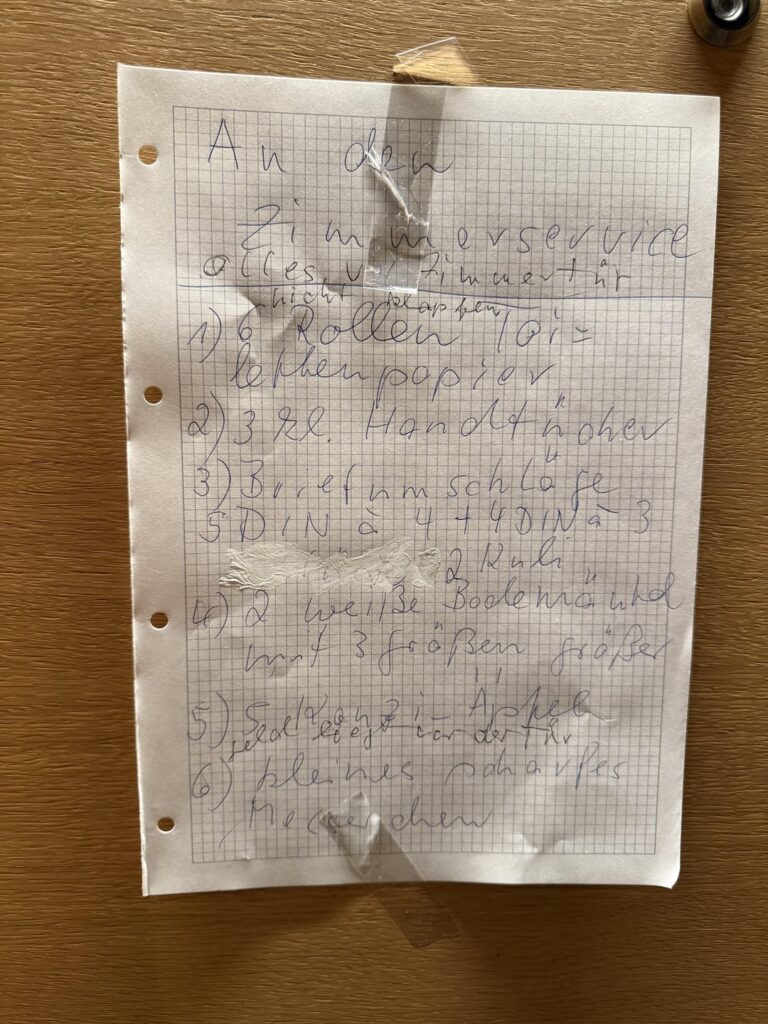 An den
Zimmerservice
alles v. Zimmertür
nicht klappen
1) 6 Rollen Toi=
lettenpapier
2) 3 kl. Handtücher
3) Briefumschläge
5 DIN à 4 + 4 DIN à 3
2 Kuli
4) 2 weiße Bademäntel
mit 3 größen größer
5) 5 Äpfel
Geld liegt vor der Tür
6) kleines scharfes
Messerchen